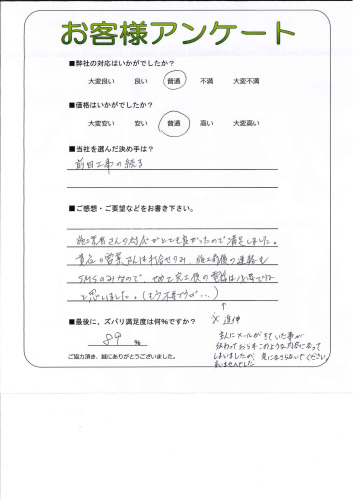 お客様アンケート
■弊社の対応はいかがでしたか？
大変良い 良い 普通 不満 大変不満
■価格はいかがでしたか？
大変安い 安い 普通 高い 大変高い
■当社を選んだ決め手は？
前回工事の続き
■ご感想・ご要望などをお書き下さい。
施工業者さんの対応がとても良かったので満足しました。
貴社の営業さんは わせのみ、施工前後の連絡も
SMSのみなので、せめて完工後の電話は必要では
と思いました。(もう不要ですが…)
↑
■最後に、ズバリ満足度は何％ですか？ ※追伸
89 %
夫にメールがきていた事が
伝わっておらずこのような内容になって
しまいましたが、気になさらないでください
すみませんでした
ご協力頂き、誠にありがとうございました。